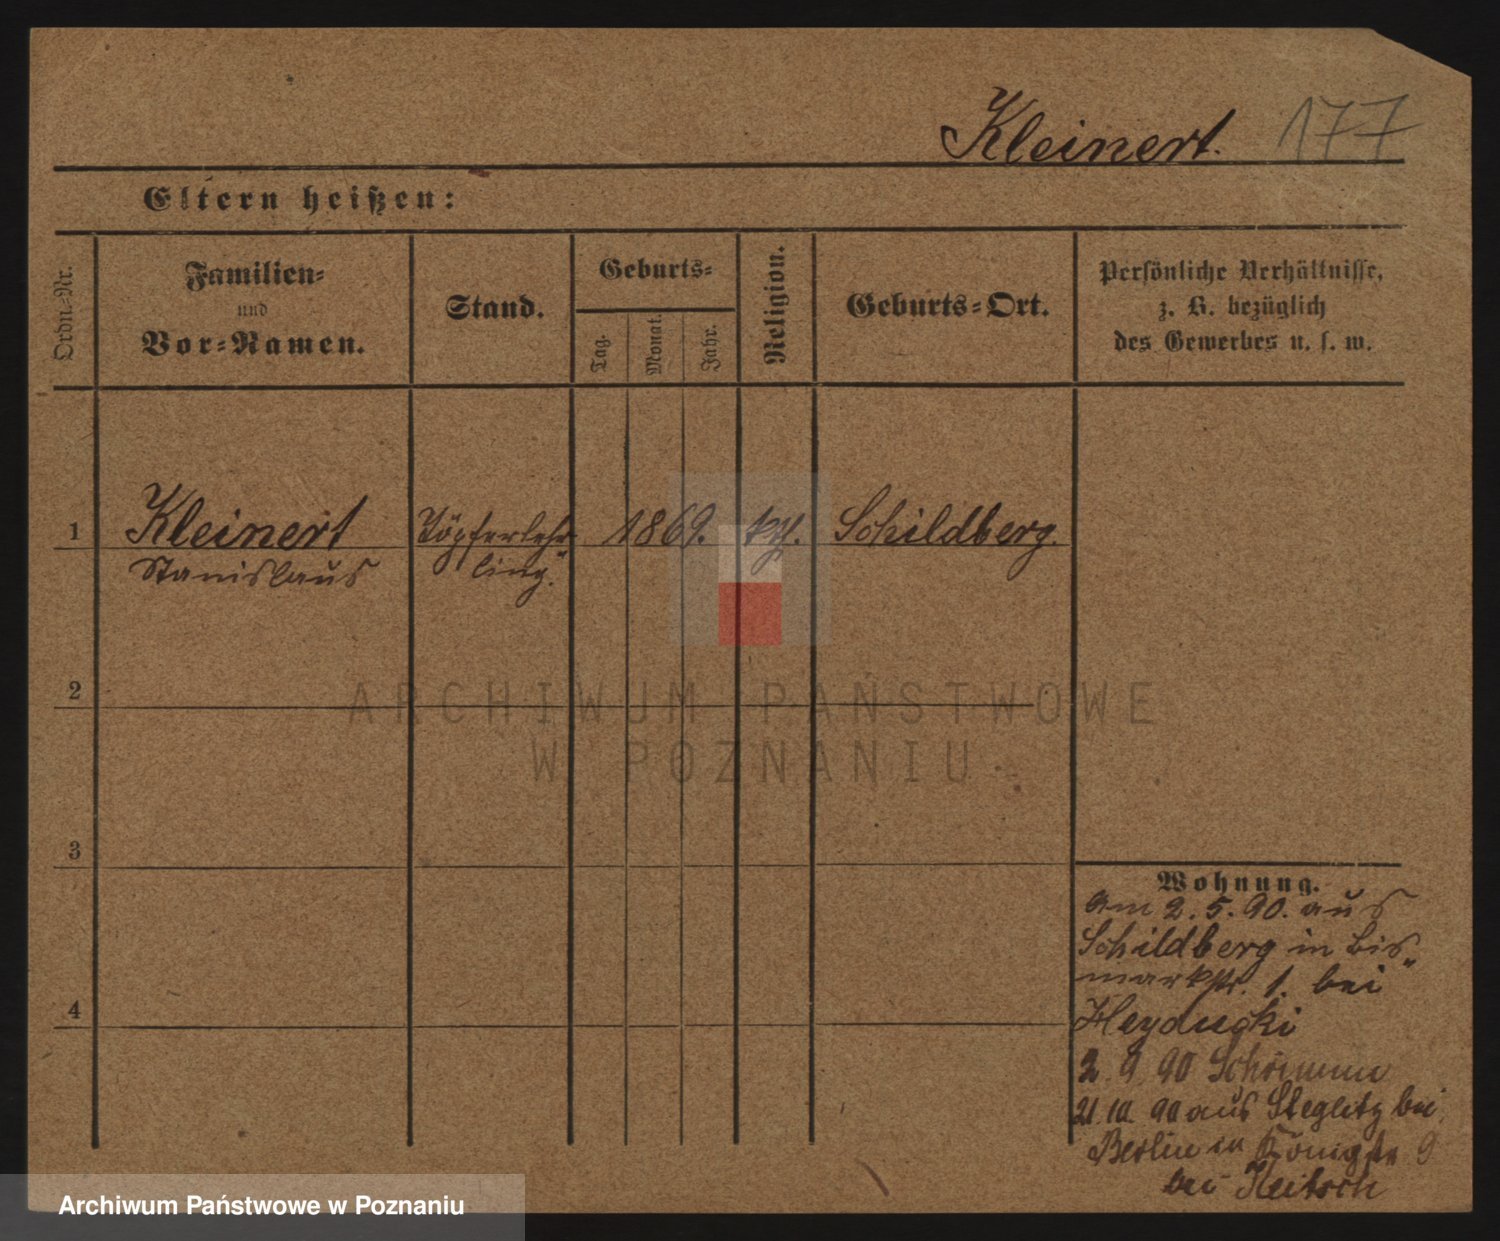 Kleinert. 177
Eltern heißen:
Ordn.=Nr.
Familien=
und
Vor=Namen.
Stand.
Geburts=
Tag.
Monat.
Jahr.
Religion.
Geburts=Ort.
Persönliche Verhältnisse,
z. B. bezüglich
des Gewerbes u. s. w.
1 Kleinert Töpferlehr= 1869. ktl. Schildberg.
Stanislaus ling.
2
ARCHIWUM PAŃSTWOWE
W POZNANIU
3
Wohnung.
am 2. 5. 90. aus
Schildberg in Bis"
markstr. 1. bei
4
Heyducki
2. 9. 90
21. 10. 90 aus Steglitz bei
Berlin in Königstr 9
bei
Archiwum Państwowe w Poznaniu